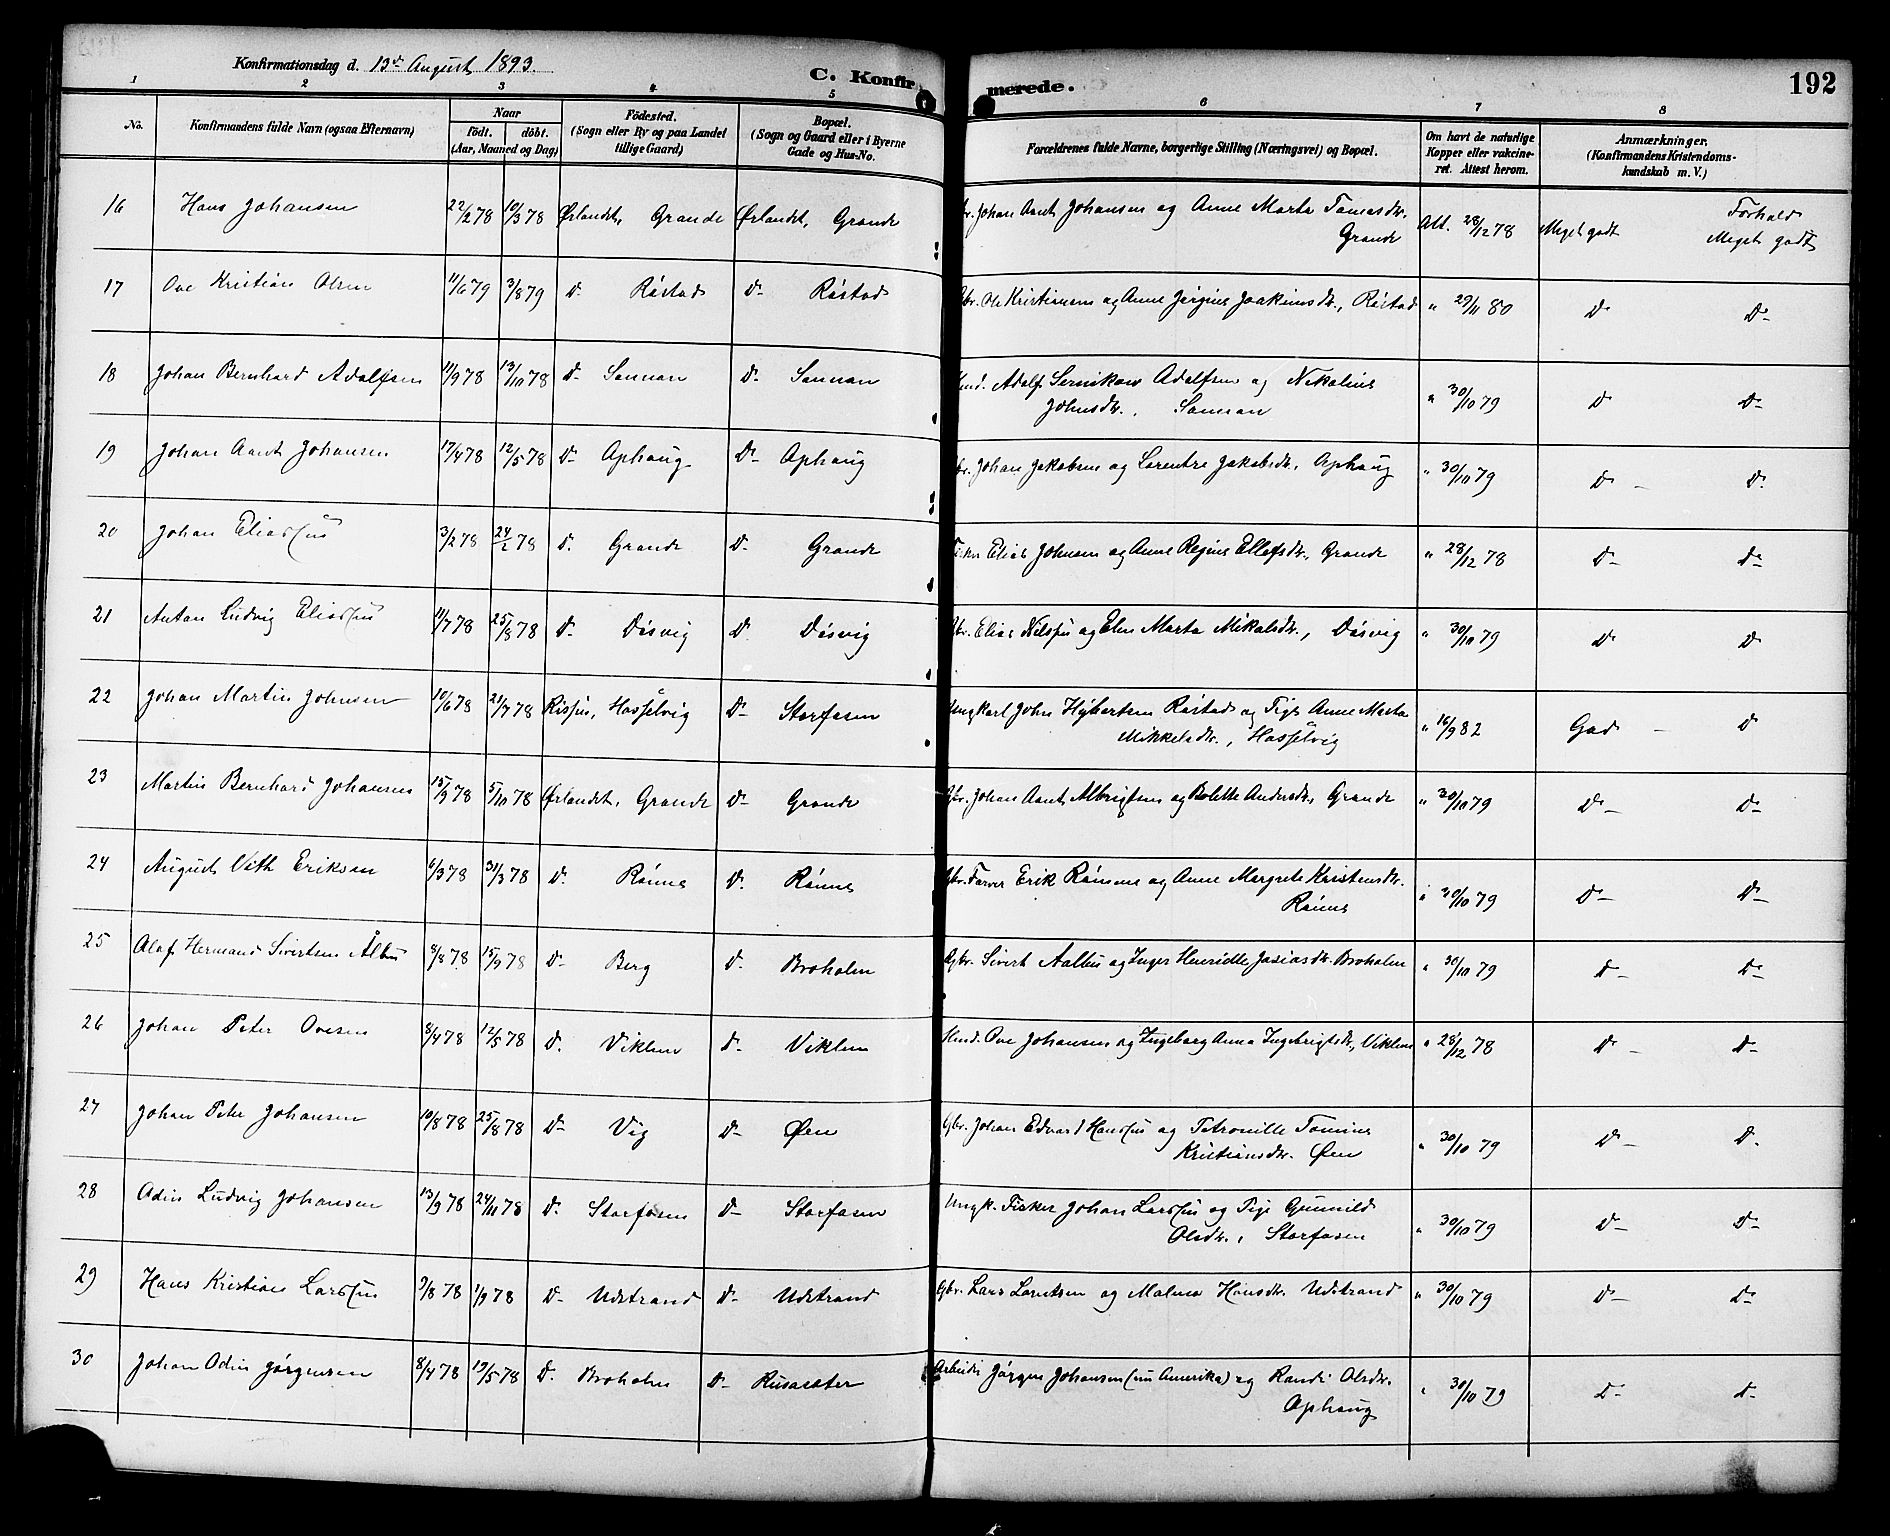 Konfirmationsdag d. 13de August 1893.
C. Konfirmerede.
192
1 2 3 4 5 6 7 8
No. Konfirmandens fulde Navn (ogsaa Efternavn) Naar født. døbt. (Aar, Maaned og Dag) Fødested. (Sogn eller By og paa Landet tillige Gaard) Bopæl. (Sogn og Gaard eller i Byerne Gade og Hus-No. Forældrenes fulde Navne, borgerlige Stilling (Næringsvei) og Bopæl. Om havt de naturlige Kopper eller vakcineret. Attest herom. Anmærkninger. (Konfirmandens Kristendomskundskab m. V.)
16 Hans Johansen 22/2 78 10/3 78 Ørlandet, Grande Ørlandet, Grande Johan Arnt Johansen og Anne Marta Tomasdr. Att. 28/12 78 Meget godt Forhold
Grande Meget godt
17 Ove Kristian Olsen 11/6 79 3/8 79 Do Røstad Do Røstad Gbr. Ole Kristiansen og Anne Jørgine Joakimsdr., Røstad " 29/11 80 Do Do
18 Johan Bernhard Adolfsen 11/9 78 13/10 78 Do Sannan Do Sannan Hmd. Adolf Adolfsen og Nikoline " 30/10 79 Do Do
Johnsdr., Sannan
19 Johan Arnt Johansen 17/4 78 12/5 78 Do Ophaug Do Ophaug Gbr. Johan Jakobsen og Lorentze Jakobsdr., Ophaug " 30/10 79 Do Do
20 Johan Eliassen 3/2 78 24/2 78 Do Grande Do Grande Fisker Elias Johnsen og Anne Regine Ellefsdr., Grande " 28/12 78 Do Do
21 Anton Ludvig Eliassen 11/7 78 25/8 78 Do Døsvig Do Døsvig Gbr. Elias Nilssen og Elen Marta Mikalsdr., Døsvig " 30/10 79 Do Do
22 Johan Martin Johnsen 10/6 78 21/7 78 Rissen, Hasselvig Do Storfosen Ungkarl John Hybertsen Røstad og Pige Anne Marta " 16/9 82 God Do
Mikkelsdr., Hasselvig
23 Martin Bernhard Johansen 15/9 78 5/10 78 Ørlandet, Grande Do Grande Gbr. Johan Arnt Albrigtsen og Bolette Andersdr., Grande " 30/10 79 Do Do
24 August Vith Eriksen 6/3 78 31/3 78 Do Rønne Do Rønne Gbr. Farver Erik Rønne og Anne Margrete Kristensdr. " 30/10 79 Do Do
Rønne
25 Olaf Hermand Sivertsen Ålbu 8/8 78 15/9 78 Do Berg Do Broholm Gbr. Sivert Aalbu og Inger Henridtte Josiasdr. Broholm " 30/10 79 Do Do
26 Johan Peter Ovesen 8/4 78 12/5 78 Do Viklem Do Viklem Hmd. Ove Johansen og Ingeborg Anna Ingebrigtsdr., Viklem " 28/12 78 Do Do
27 Johan Peter Johansen 10/8 78 25/8 78 Do Vig Do Øen Gbr. Johan Edvard Hanssen og Petronille Tomine " 30/10 79 Do Do
Kristiansdr. Øen
28 Odin Ludvig Johansen 13/9 78 24/11 78 Do Storfosen Do Storfosen Ungk. Fisker Johan Larssen og Pige Gunnild " 30/10 79 Do Do
Olsdr., Storfosen
29 Hans Kristian Larssen 9/8 78 1/9 78 Do Udstrand Do Udstrand Gbr. Lars Larntsen og Malena Hansdr. Udstrand " 30/10 79 Do Do
30 Johan Odin Jørgensen 8/4 78 19/5 78 Do Broholm Do Rusaseter Arbeider Jørgen Johansen (nu Amerika) og Randi Olsdr. " 30/10 79 Do Do
Ophaug